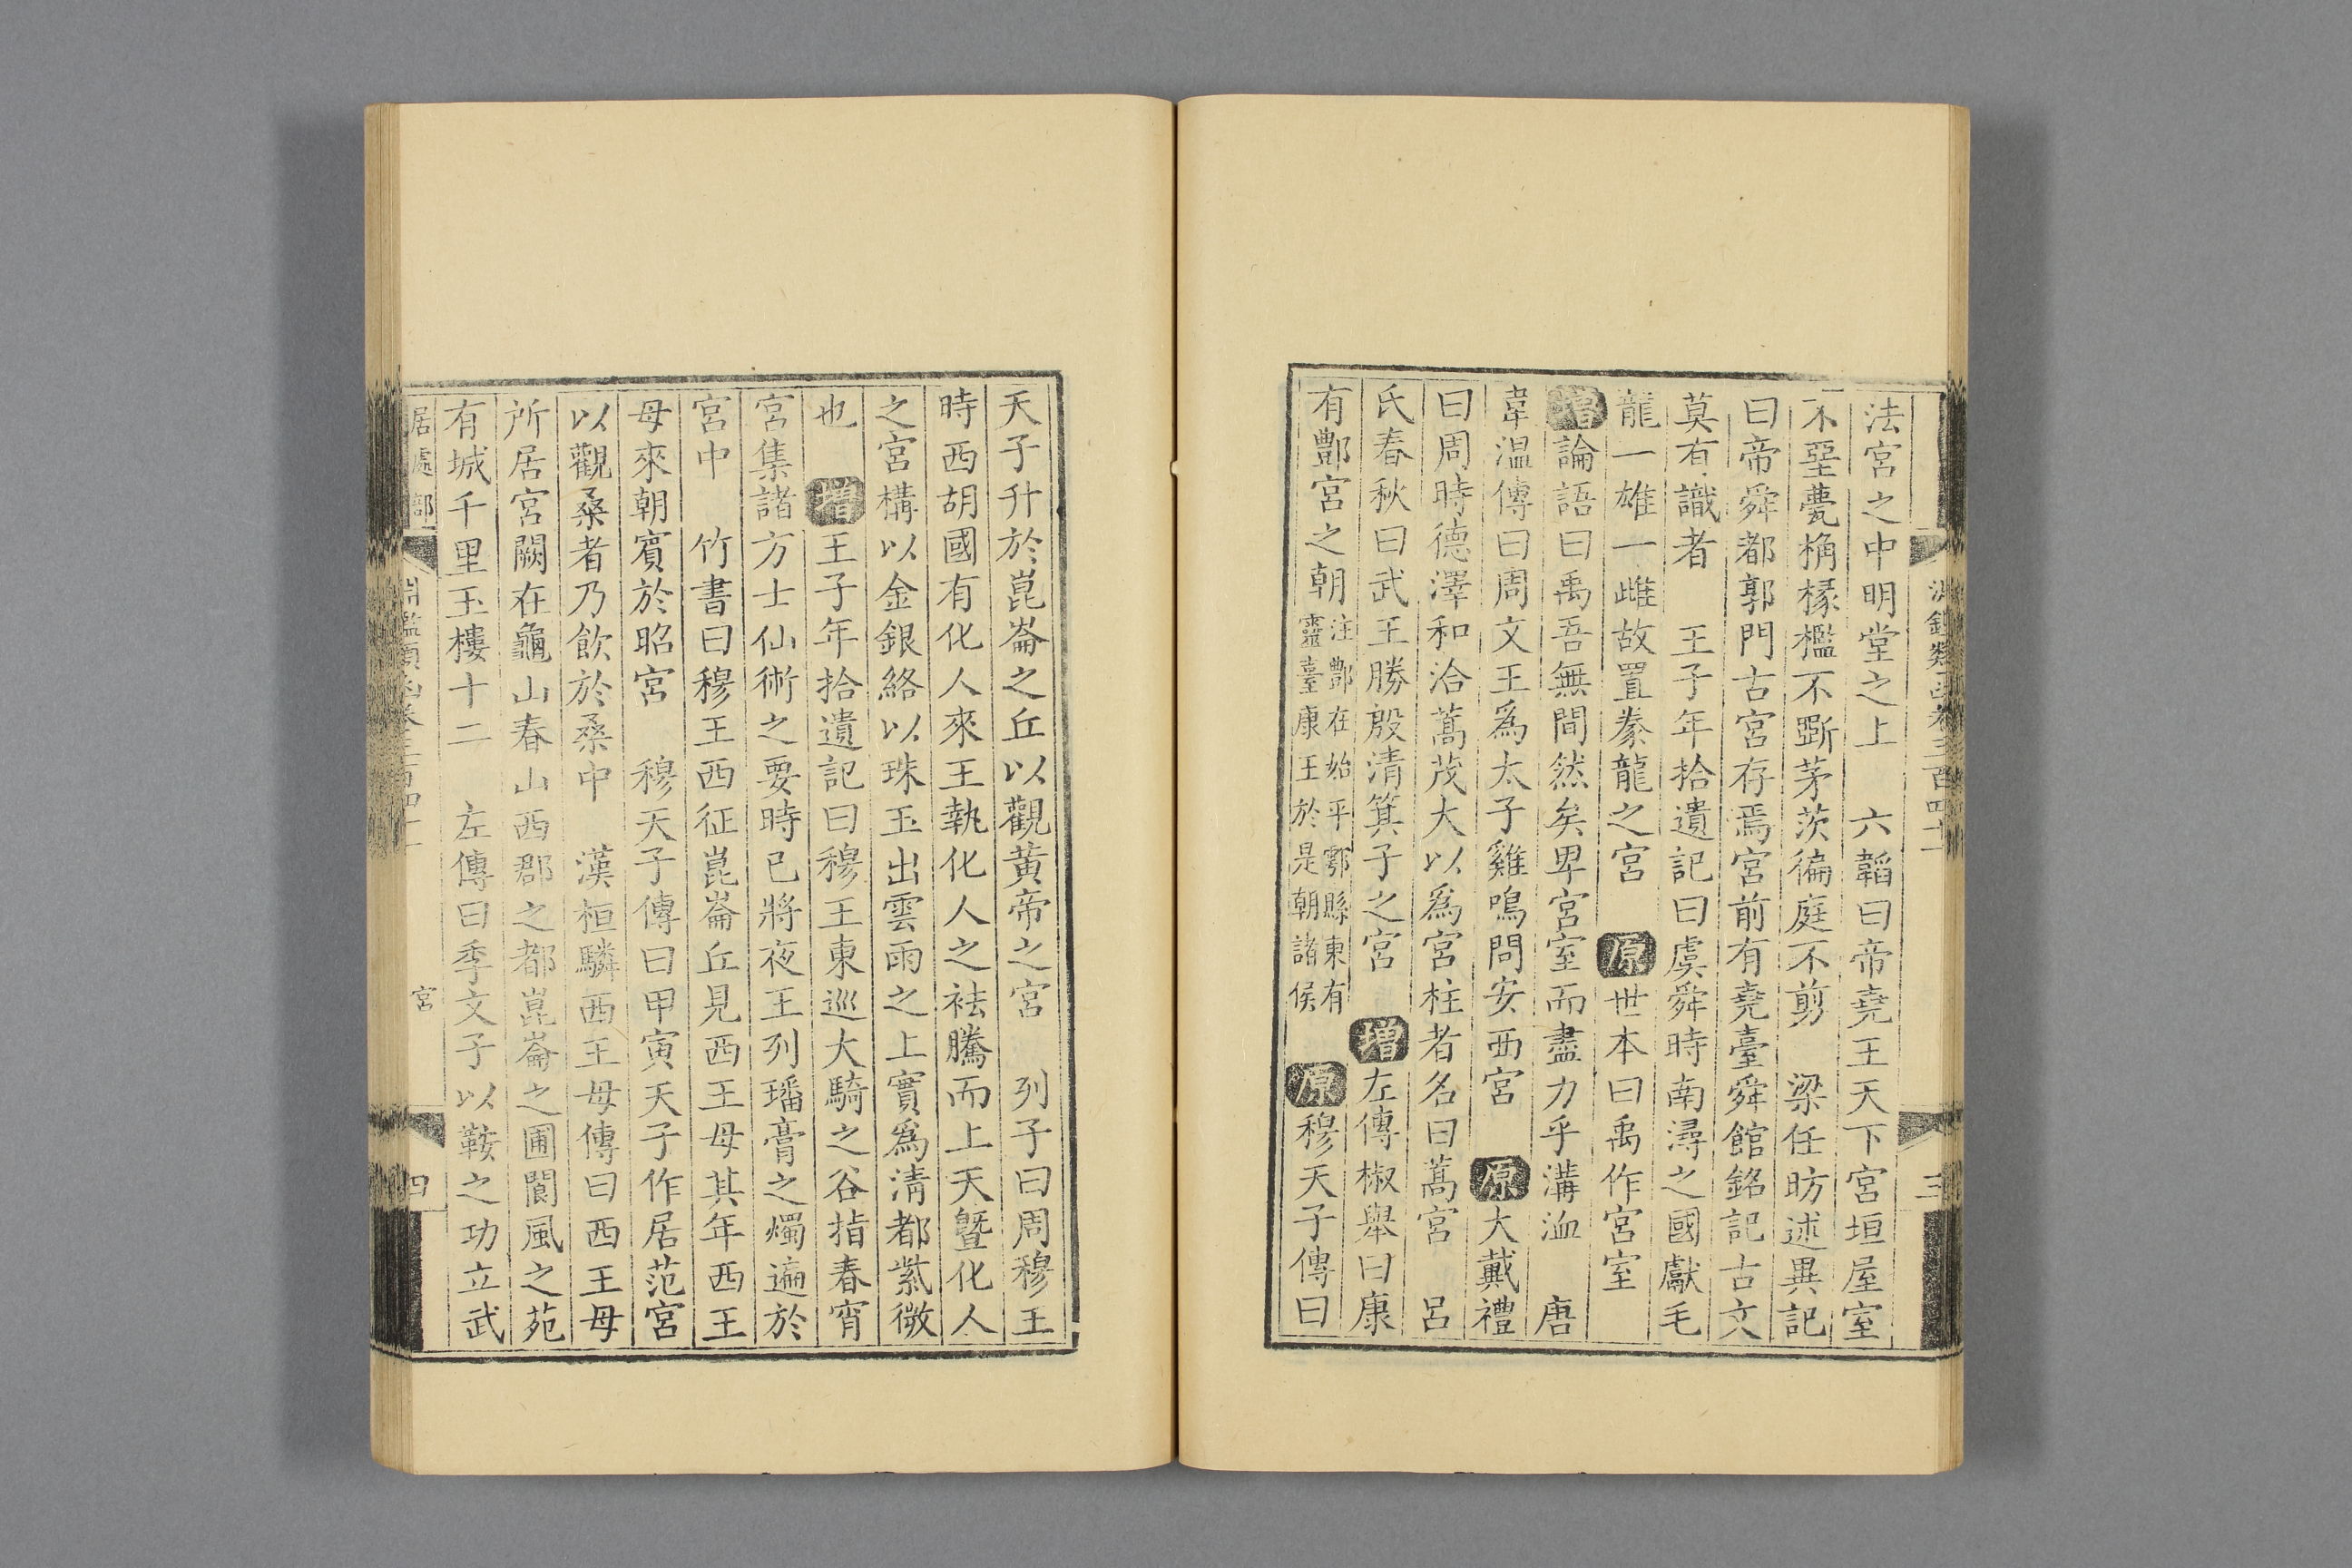 法宮之中明堂之上　六韜曰帝堯王天下宮垣屋室
不堊甍桷椽檻不斲茅茨徧庭不剪　梁任昉述異記
曰帝舜都郭門古宮存焉宮前有堯臺舜館銘記古文
莫有識者　王子年拾遺記曰虞舜時南潯之國獻毛
龍一雄一雌故置豢龍之宮　原世本曰禹作宮室
增論語曰禹吾無間然矣卑宮室而盡力乎溝洫　唐
韋温傳曰周文王爲太子雞鳴問安西宮　原大戴禮
曰周時德澤和洽蒿茂大以爲宮柱者名曰蒿宮　呂
氏春秋曰武王勝殷清箕子之宮　增左傳椒舉曰康
有酆宮之朝注酆在始平鄠縣東有靈臺康王於是朝諸侯　原穆天子傳曰
天子升於崑崙之丘以觀黄帝之宮　列子曰周穆王
時西胡國有化人來王執化人之袪騰而上天曁化人
之宮構以金銀絡以珠玉出雲雨之上實爲清都紫微
也　增王子年拾遺記曰穆王東巡大騎之谷指春宵
宮集諸方士仙術之要時已將夜王列璠膏之燭遍於
宮中　竹書曰穆王西征崑崙丘見西王母其年西王
母來朝賓於昭宮　穆天子傳曰甲寅天子作居范宮
以觀桑者乃飲於桑中　漢桓驎西王母傳曰西王母
所居宮闕在龜山春山西郡之都崑崙之圃閬風之苑
有城千里玉樓十二　左傳曰季文子以鞍之功立武
居處部　淵鑑類函卷三百四十一　宮　四